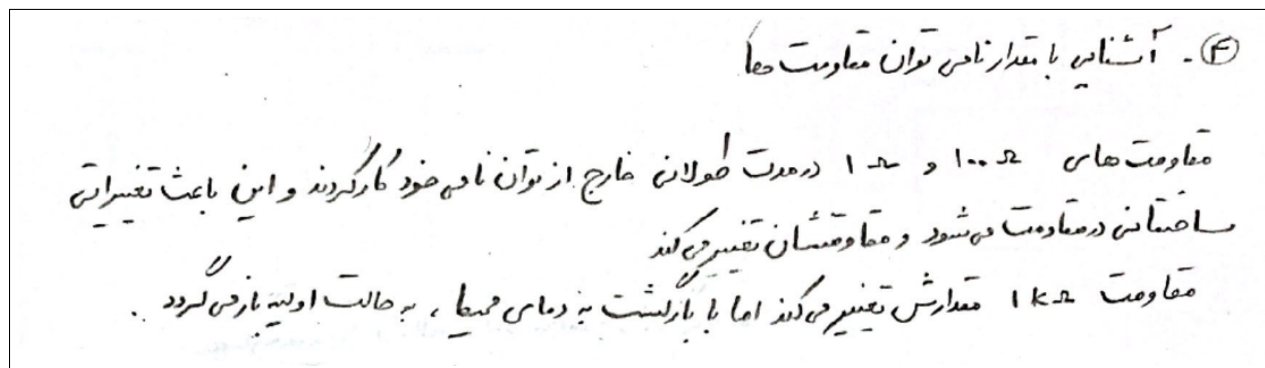 ۴- آشنایی با مقدار نامی توان مقاومت ها
مقاومت های ۱۰۰ Ω و ۱ Ω در مدت طولانی خارج از توان نامی خود کار کردند و این باعث تغییراتی
ساختمانی در مقاومت می شود و مقاومتشان تغییر می کند
مقاومت ۱ kΩ مقدارش تغییر می کند اما با بازگشت به دمای محیط ، به حالت اولیه باز می گردد .